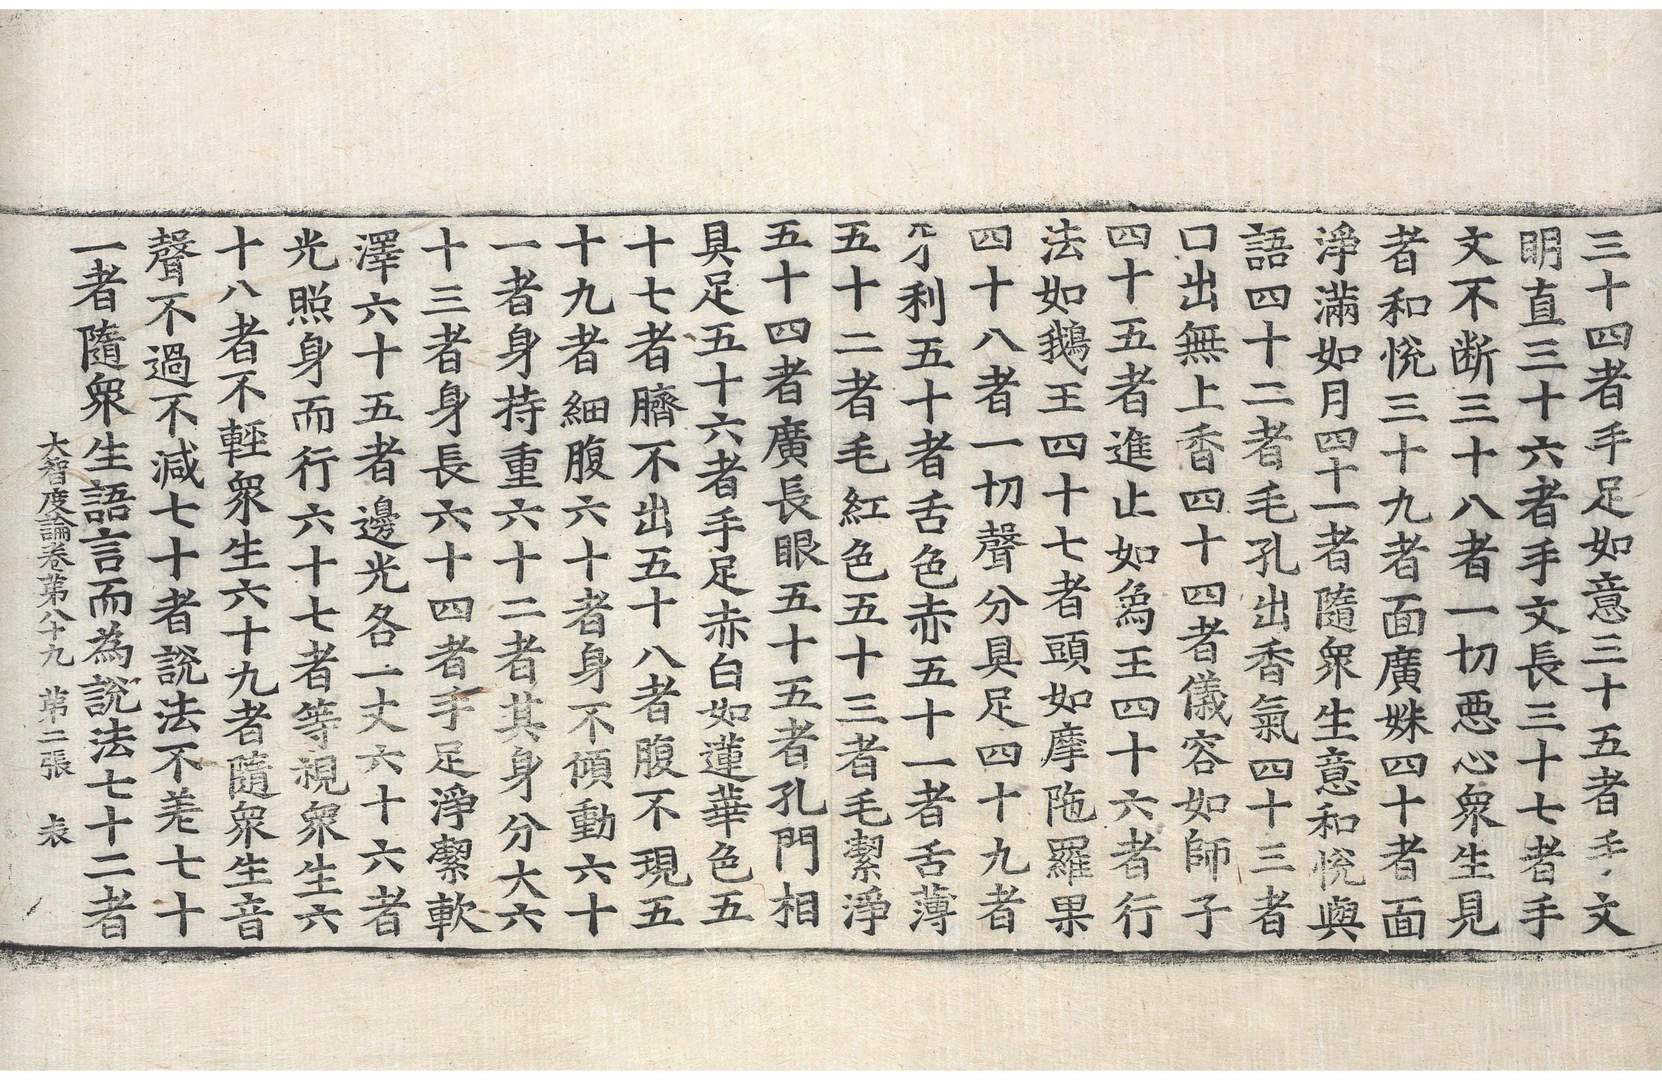 三十四者手足如意三十五者手文
明直三十六者手文長三十七者手
文不断三十八者一切悪心衆生見
者和悅三十九者面廣姝四十者面
淨滿如月四十一者隨衆生意和悅與
語四十二者毛孔出香氣四十三者
口出無上香四十四者儀容如師子
四十五者進止如爲王四十六者行
法如鵝王四十七者頭如摩陁羅果
四十八者一切聲分具足四十九者
牙利五十者舌色赤五十一者舌薄
五十二者毛紅色五十三者毛潔淨
五十四者廣長眼五十五者孔門相
具足五十六者手足赤白如蓮華色五
十七者臍不出五十八者腹不現五
十九者細腹六十者身不傾動六十
一者身持重六十二者其身分大六
十三者身長六十四者手足淨潔軟
澤六十五者邊光各一丈六十六者
光照身而行六十七者等視衆生六
十八者不輕衆生六十九者隨衆生音
聲不過不減七十者說法不差七十
一者隨衆生語言而為說法七十二者
大智度論卷第八十九 第二張 表